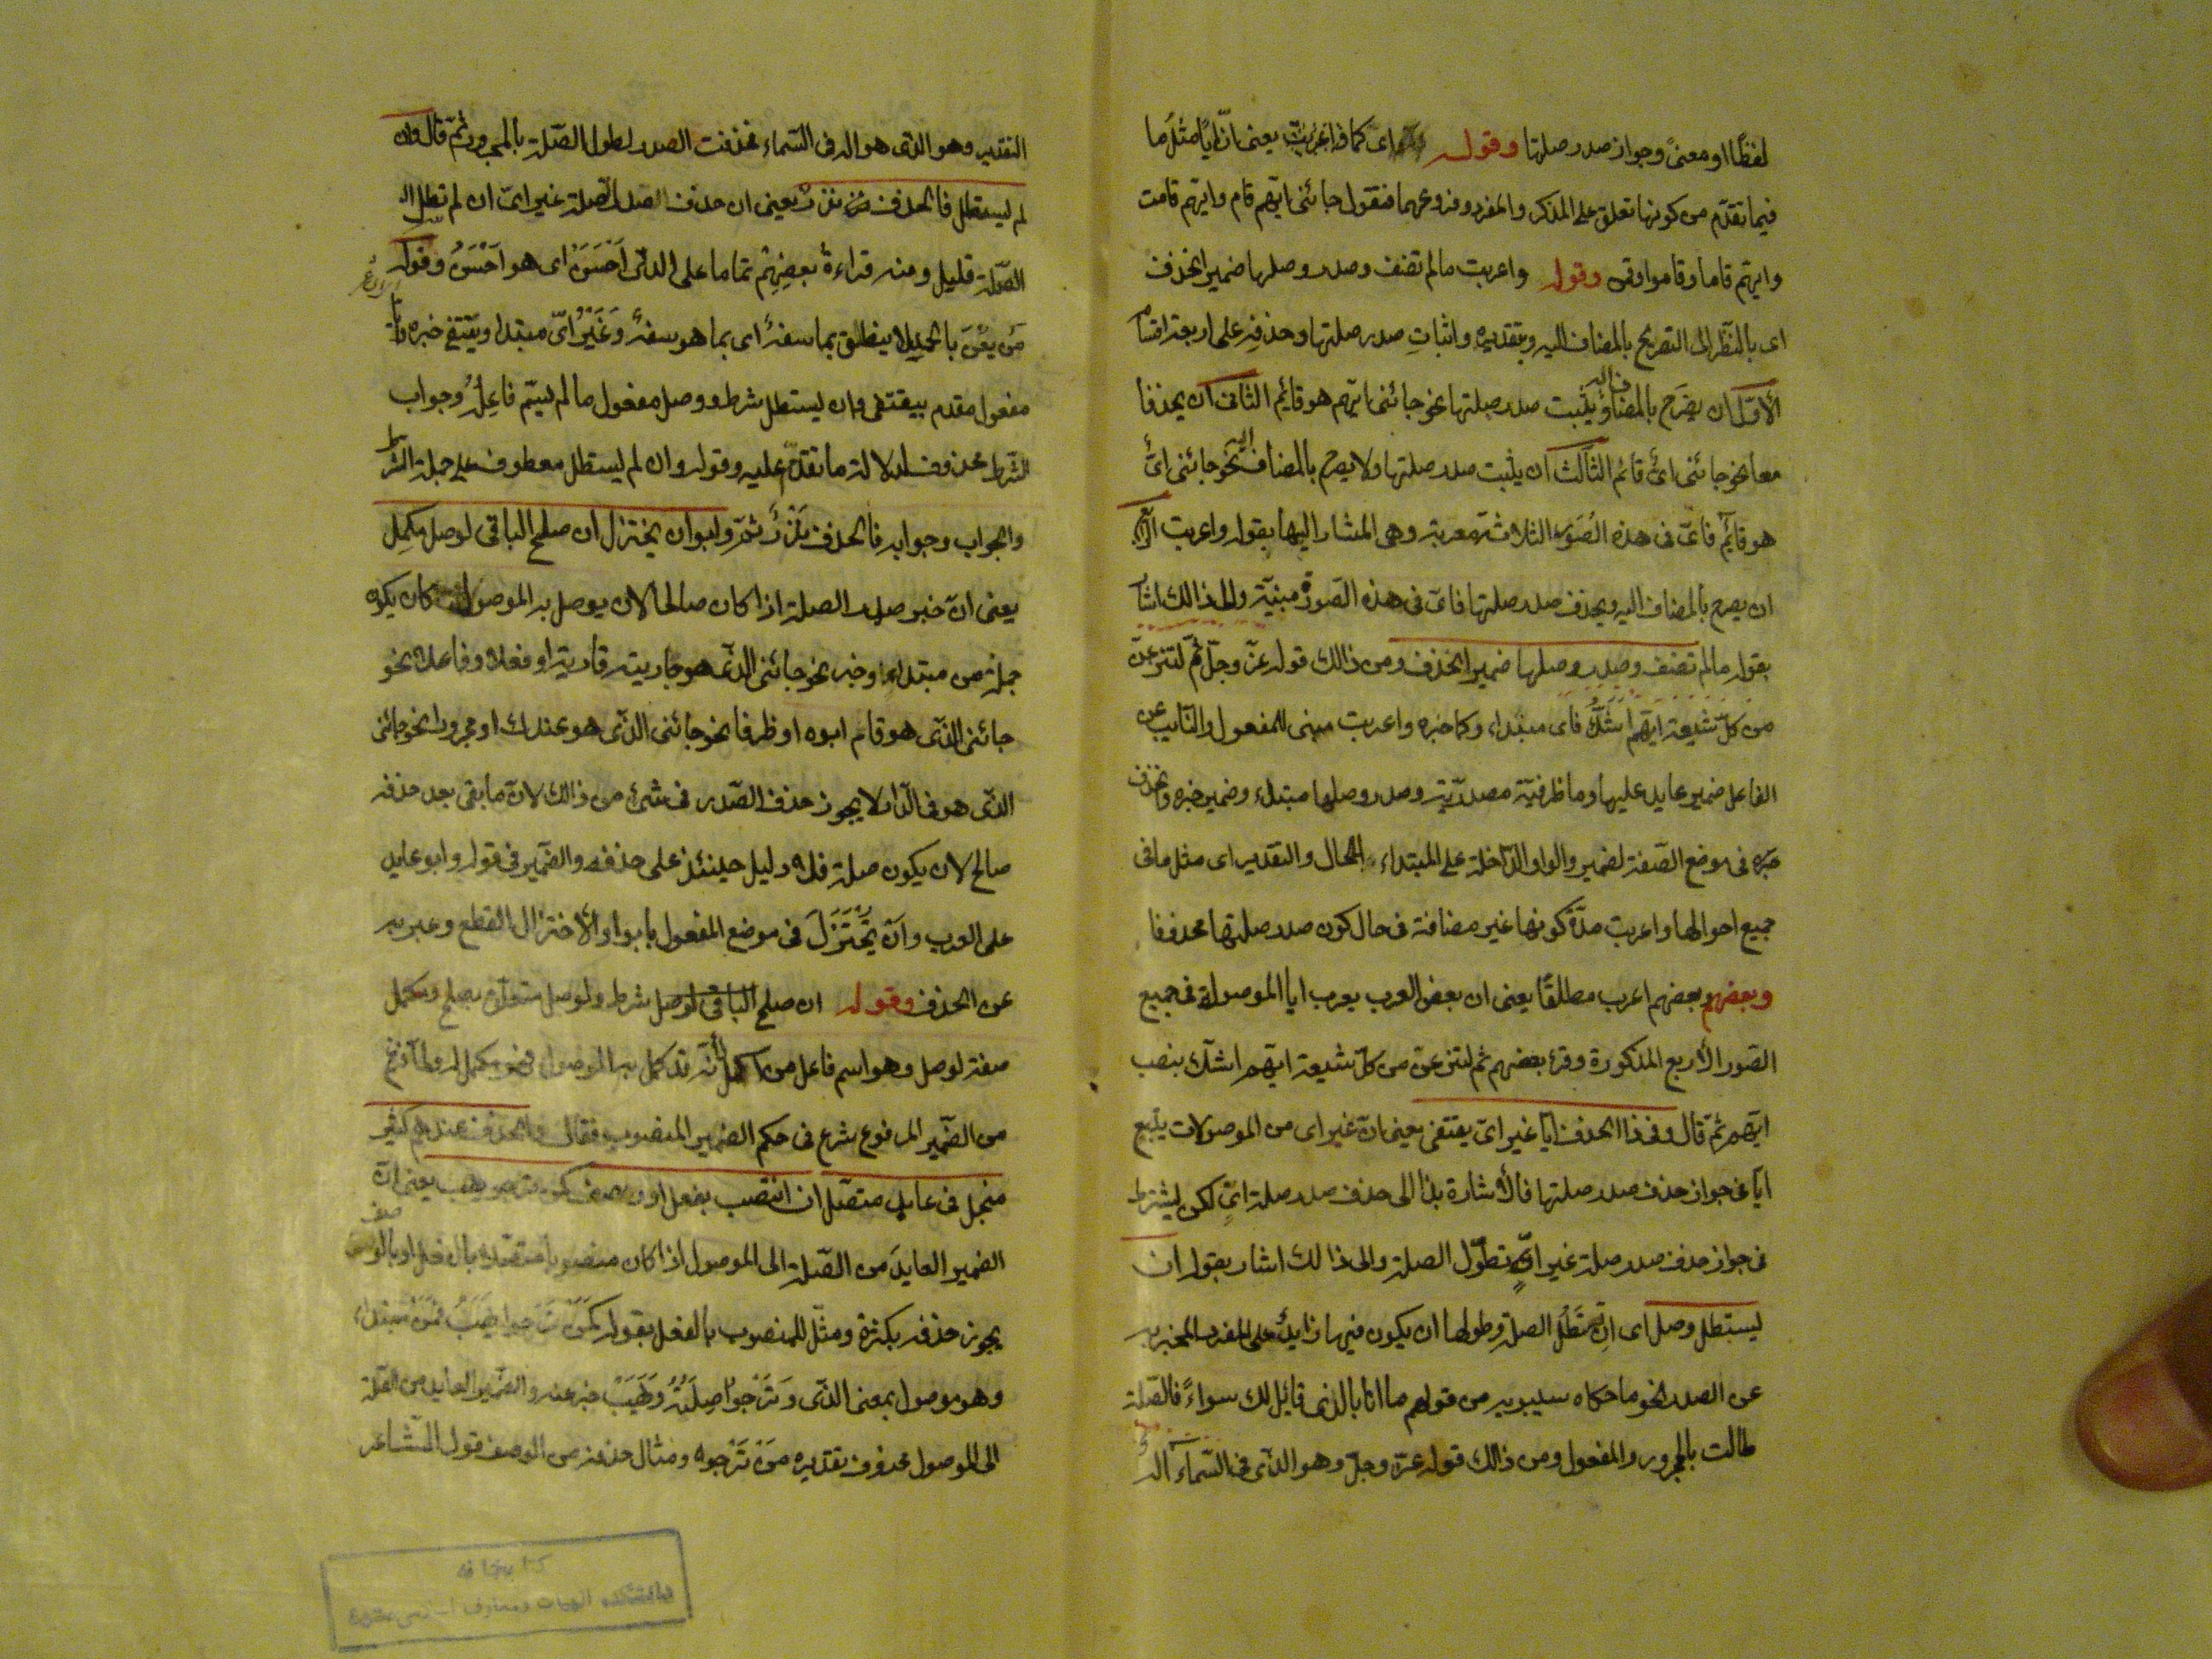 لفظًا او معنىً وجواز صدر صلتها وقوله اى كما واعربت يعنى انّ ايًّا مثلُ ما
فيما تقدّم من كونها تعلق على المذكر والمفرد وفروعهما فتقول جائنى ايّهم قام وايّهم قامت
وايّهم قاما وقاموا وقمن وقوله واعربت ما لم تضف وصدر وصلها ضمير انحذف
اى بالنّظر الى التصريح بالمضاف اليه وبتقديره واثباتِ صدر صلتها وحذفِهِ على اربعة اقسام
الأوّل ان يصَرح بالمضاف اليه ويثبت صدر صلتها نحو جائنى ايّهم هو قائم الثانى ان يحذفا
معا نحو جائنى اىٌّ قائم الثالث ان يثبت صدر صلتها ولا يصرح بالمضاف اليه نحو جائنى اىٌّ
هو قائم فاىّ فى هذه الصُوَر الثلاثة معربة وهى المشار اليها بقوله واعربت الرابع
ان يصرح بالمضاف اليه ويحذف صدر صلتها فاىّ فى هذه الصورة مبنيّة والى ذالك اشار
بقوله ما لم تضف وصدر وصلها ضمير انحذف ومن ذالك قوله عزّ وجلّ ثمّ لننزعنّ
من كلّ شيعة ايّهم اشَدُّ فاى مبتداء وكما خبره واعربت مبنى للمفعول والنّايب عن
الفاعل ضمير عايد عليها وما ظرفيّة مصدريّة وصدر وصلها مبتداء وضمير خبره وانحذف
خبره فى موضع الصّفة لضمير والواو الدّاخلة على المبتداء للحال والتقدير اى مثل ما فى
جميع احوالها واعربت مدّة كونها غير مضافة فى حال كون صدر صلتها محذوفا
وبعضهم بعضهم اعرب مطلقًا يعنى ان بعض العرب يعرب ايا الموصولة فى جميع
الصّور الأربع المذكورة وقرء بعضهم ثم لننزعنّ من كلّ شيعة ايّهم اشدّ بنصب
ايّهم ثمّ قال وفى ذا الحذف ايّا غير اىّ يقتفى يعنى انّ غير اى من الموصولات يتبع
ايّا فى جواز حذف صدر صلتها فالأشارة بذا الى حذف صدر صلة اىّ لكن يشترط
فى جواز حذف صدر صلة غير اىٍّ تطوّل الصلة والى ذالك اشار بقوله ان
يستطل وصل اى اِن تَسْتَطُل الصلة وطولها ان يكون فيها زايد على المفرد المخبر به
عن الصدر نحو ما حكاه سيبويه من قولهم ما انا بالذى قائل لك سواءً فالصّلة
طالت بالمجرور والمفعول ومن ذالك قوله عزّ وجلّ وهو الذّى فى السّماء اله
التقدير وهو الذّى هو اله فى السّماء فحذفت الصدر لطول الصّلة بالمجرور ثمّ قال وان
لم يستطل فالحذف نزر يعنى ان حذف صدر الصلة غير اىّ ان لم تطل
الصّلة قليل ومنه قراءة بعضِهِم تماما على الذّى اَحْسَنُ اى هو اَحْسَنُ وقوله
مَن يعْنَ بالحمد لا ينطلق بما سفهٌ اى بما هو سفهٌ وَغَيْرُ اىّ مبتداء ويقتفى خبره
مفعول مقدم بيقتفى وان يستطل شرط ووصل مفعول ما لم يسّم فاعِلُهُ وجواب
الشّرط محذوف لدلالة ما تقدّم عليه وقوله وان لم يستطل معطوف على جملة الشّرط
والجواب وجوابه فالحذف نَزْرٌ ثمّ وابوا ان يختزل ان صلح الباقى لوصل مكمِل
يعنى انّ خبر صدر الصلة اذا كان صالحا لان يوصل به الموصول كان يكون
جملة من مبتداء وخبر نحو جائنى الذّى هو جاريته قارية او فعلا وفاعلا نحو
جائنى الذّى هو قام ابوه او ظرفا نحو جائنى الذّى هو عندك او مجرورا نحو جائنى
الذّى هو فى الدّار لا يجوز حذف الصّدر فى شئ من ذالك لانّ ما بقى بعد حذفه
صالح لان يكون صلة فلا دليل حينئذ على حذفه والضّمير فى قوله وابو عايد
على العرب واَن يُخْتَزَلَ فى موضع المفعول بابوا والأختزال القطع وعبر به
عن الحذف وقوله ان صلح الباقى لوصل شرط ولوصل متعلّق بصلح ومكمل
صفة لوصل وهو اسم فاعل من اكمل لأنّه قد كمل به الموصول فهو مكمل له ولمّا فرغ
من الضّمير المرفوع شرع فى حكم الضمير المنصوب فقال والحذف عندهم كثير
منجل فى عايد متصّل ان انتصب بفعل او وصف كمن نرجو يهب يعنى انّ
الضمير العايدَ من الصّلة الى الموصول اذا كان منصوبا متصّلا بالفعل او بالوصف
يجوز حذفه بكثرة ومثّل للمنصوب بالفعل بقوله كَمَنْ نَرْجوا يَهَبُ فَمَنْ مبتداء
وهو موصول بمعنى الذّى وَنَرْجوُا صِلَتُهُ وَيَهَبُ خبر عنه والضّمير العايد من الصّلة
الى الموصول محذوف تقديره مَنْ نَرْجوه ومثال حذفه من الوصف قول الشّاعر
كتابخانه
دانشكده الهيات ومعارف اسلامى مشهد